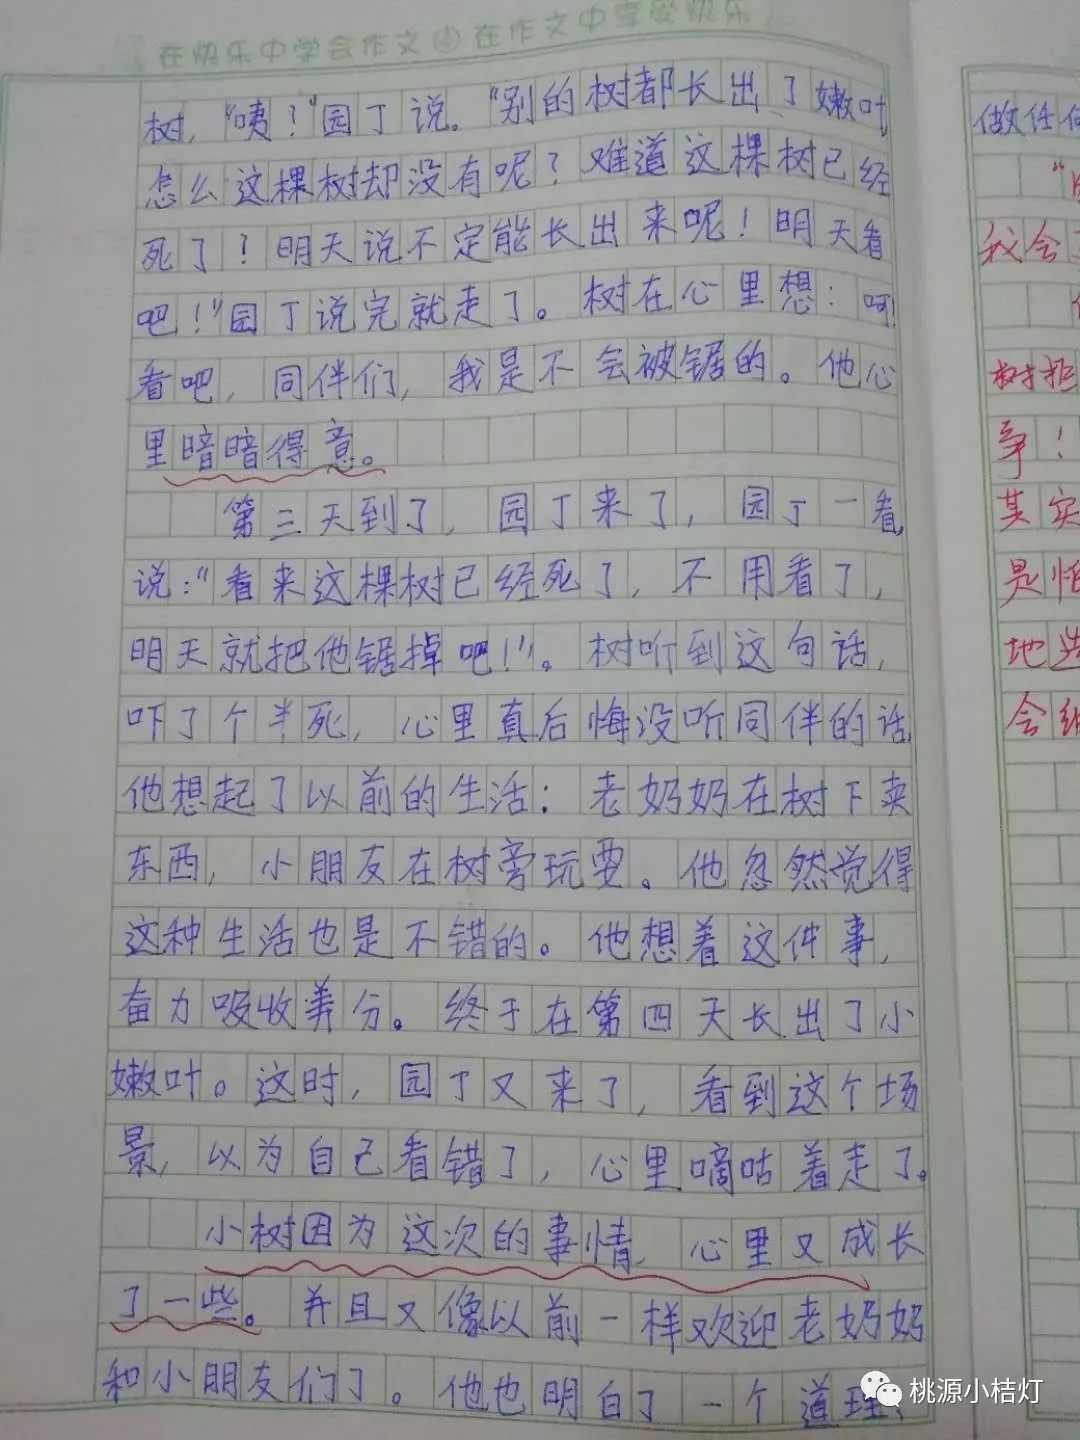 在快乐中学会作文 在作文中享受快乐
树，“咦？”园丁说。“别的树都长出了嫩叶
怎么这棵树却没有呢？难道这棵树已经
死了？明天说不定能长出来呢！明天看
吧！”园丁说完就走了。树在心里想：呵！
看吧，同伴们，我是不会被锯的。他心
里暗暗得意。
第三天到了，园丁来了，园丁一看，
说：“看来这棵树已经死了，不用看了，
明天就把他锯掉吧！”。树听到这句话，
吓了个半死，心里真后悔没听同伴的话
他想起了以前的生活：老奶奶在树下卖
东西，小朋友在树旁玩耍。他忽然觉得
这种生活也是不错的。他想着这件事，
奋力吸收养分。终于在第四天长出了小
嫩叶。这时，园丁又来了，看到这个场
景，以为自己看错了，心里嘀咕着走了。
小树因为这次的事情，心里又成长
了一些。并且又像以前一样欢迎老奶奶
和小朋友们了。他也明白了一个道理，
做任
我会
树拒
争！
其实
是怕
地
会
桃源小桔灯